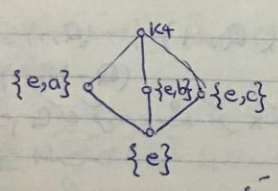 K4
{e,a} {e,b} {e,c}
{e}